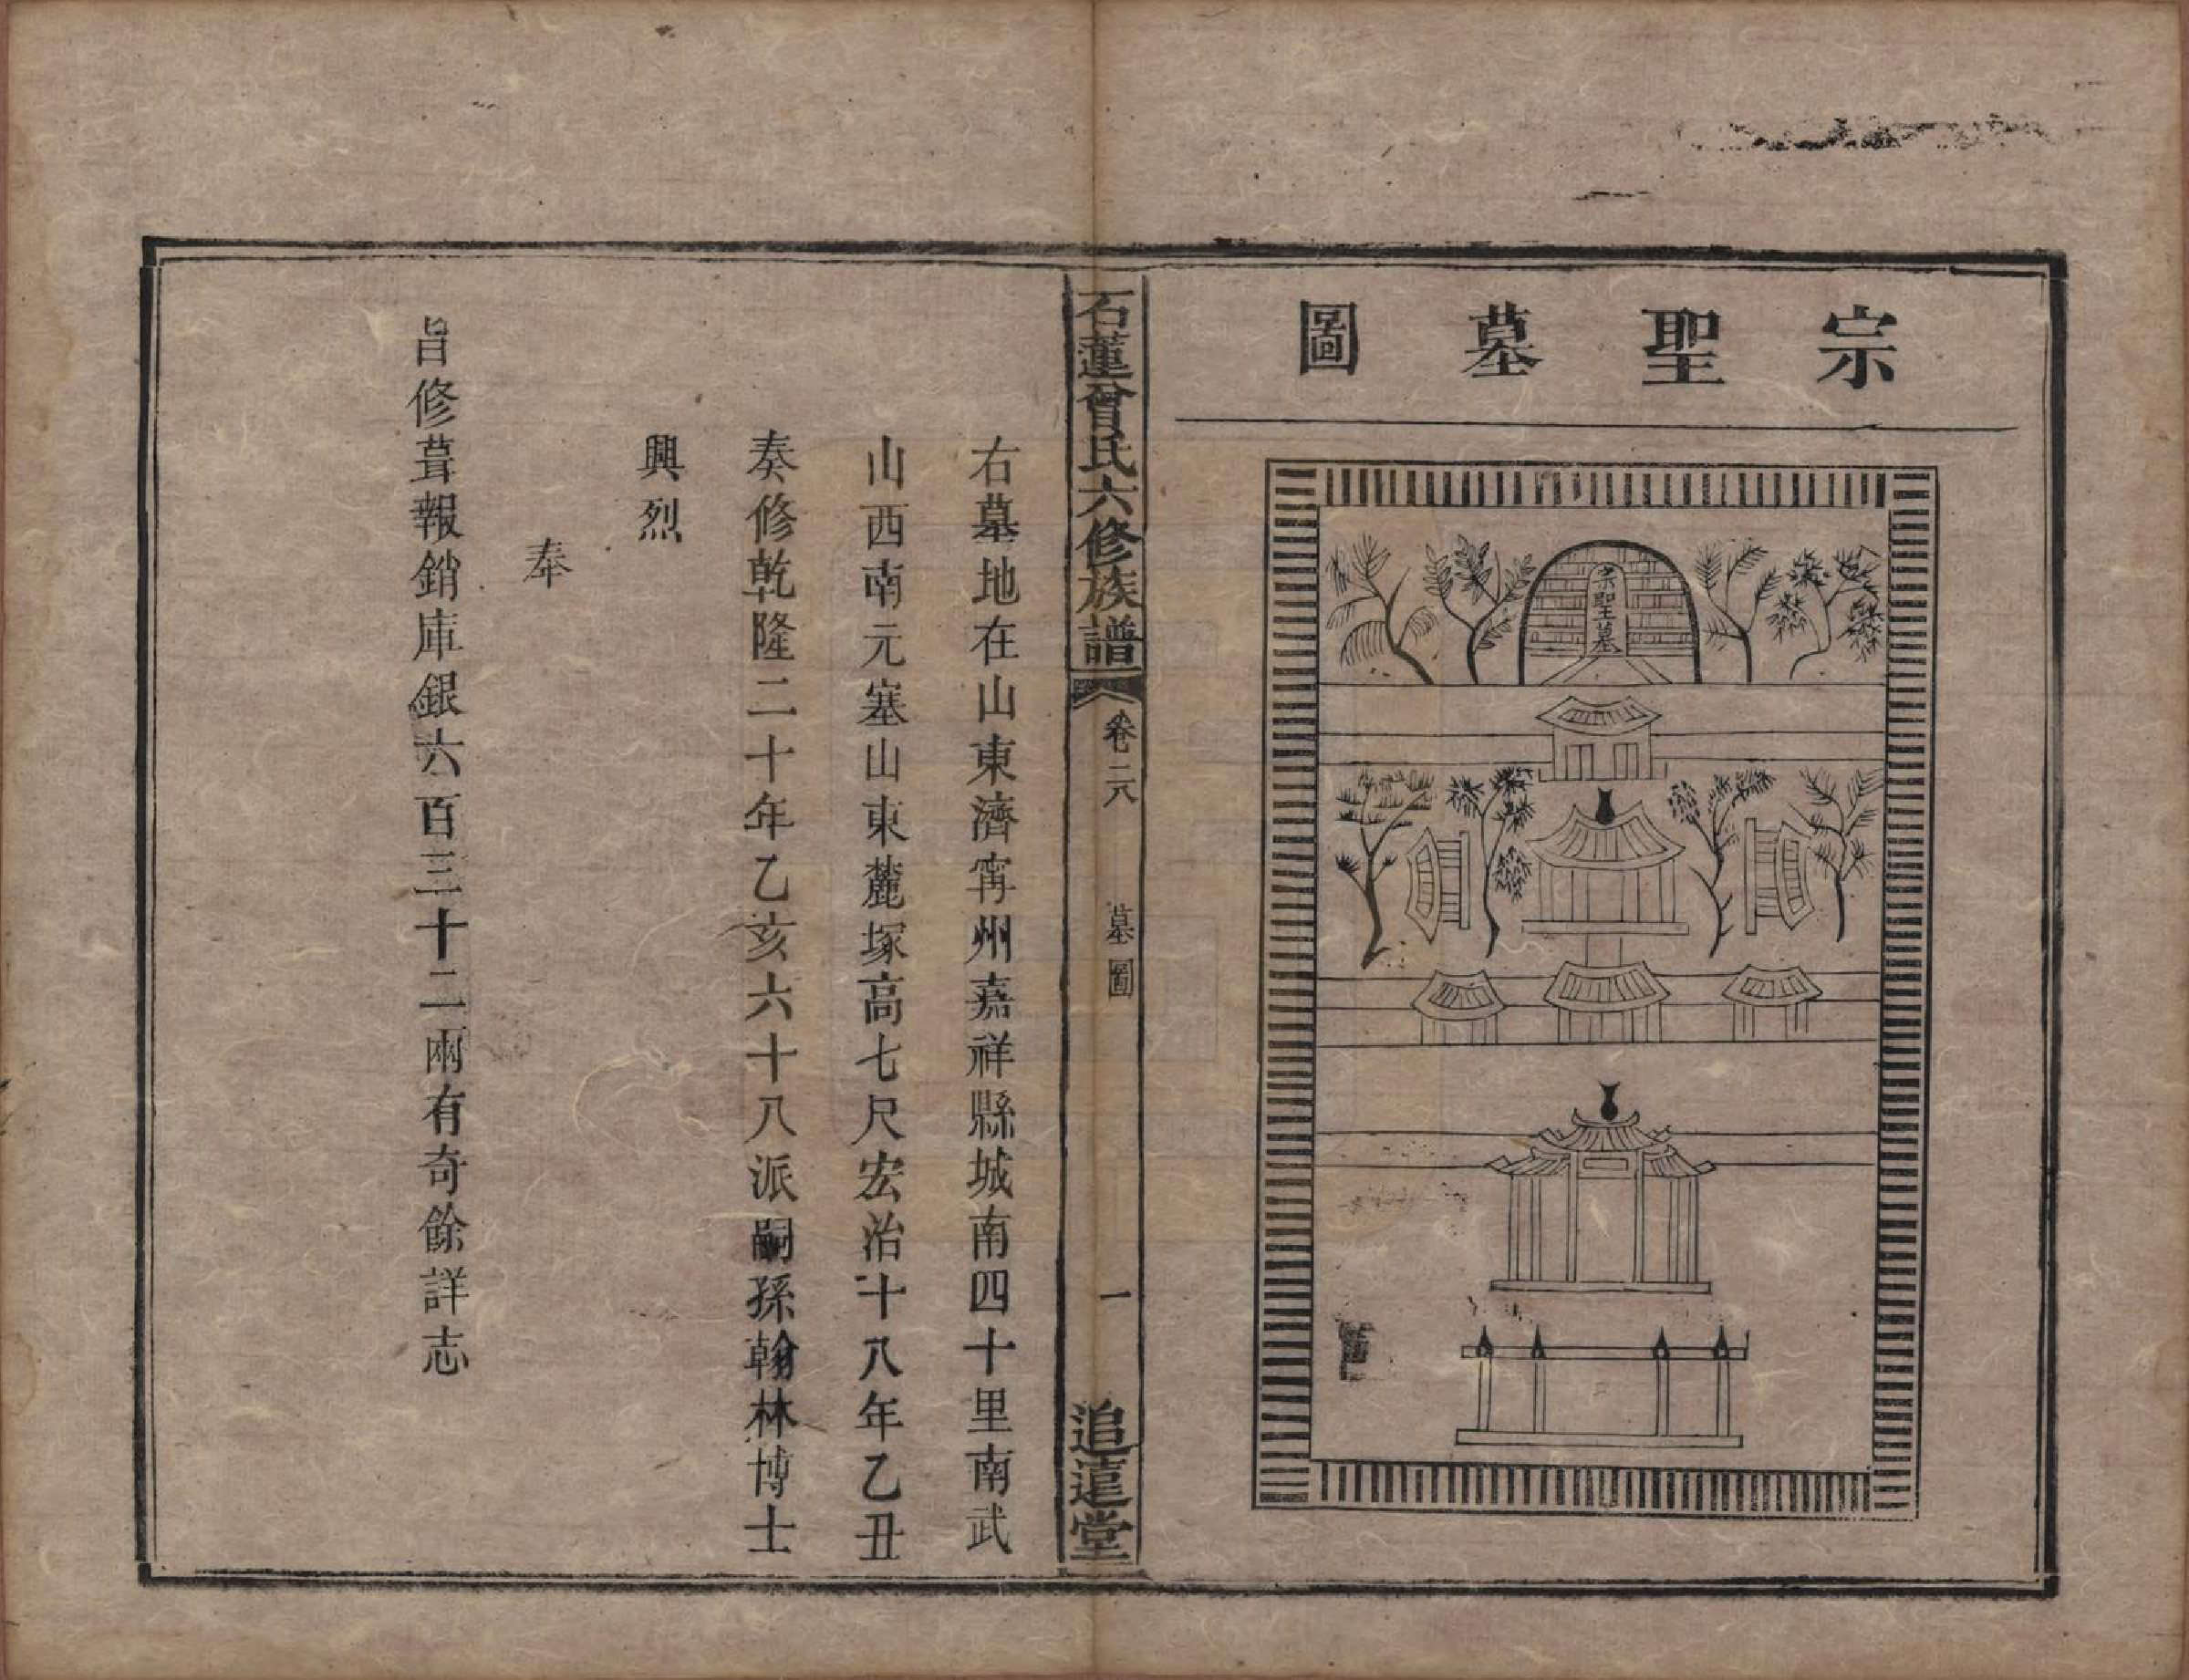 宗聖墓圖
宗聖墓
石蓮曾氏六修族譜
卷二八
墓圖
一
追遠堂
右墓地在山東濟甯州嘉祥縣城南四十里南武
山西南元寨山東麓塚高七尺宏治十八年乙丑
奏修乾隆二十年乙亥六十八派嗣孫翰林博士
興烈
奉
旨修葺報銷庫銀六百三十二兩有奇餘詳志